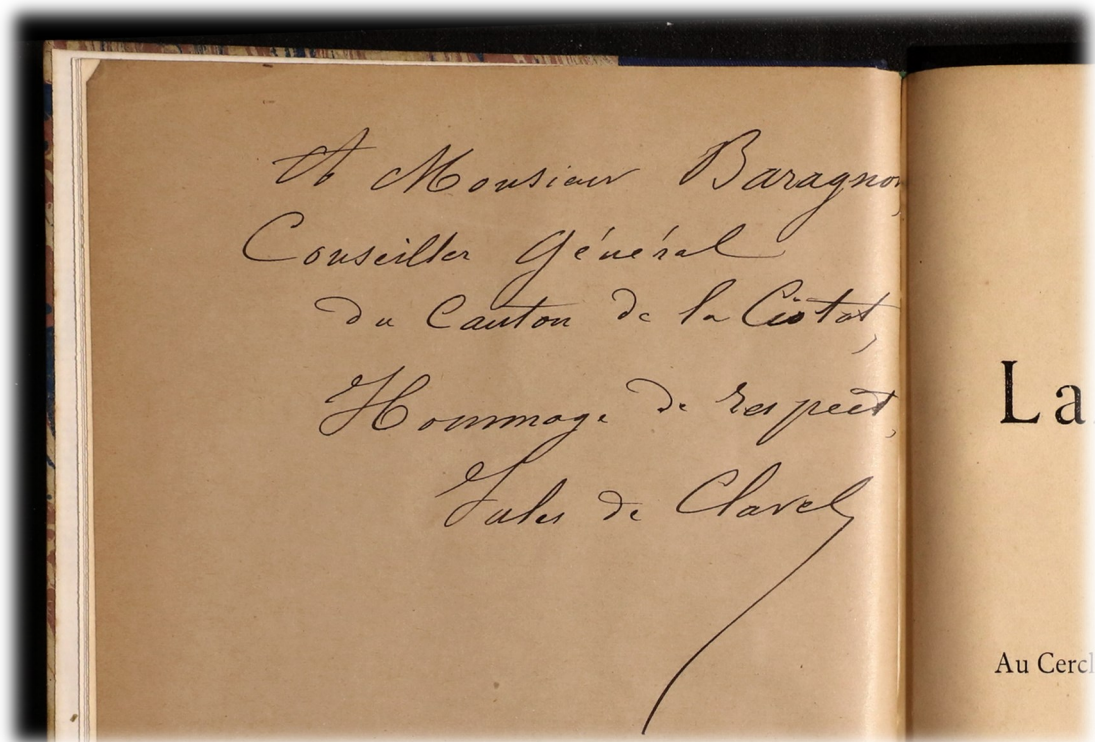 A Monsieur Baragnon,
Conseiller Général
du Canton de la Ciotat,
Hommage de respect,
Jules de Clavel
La
Au Cercl